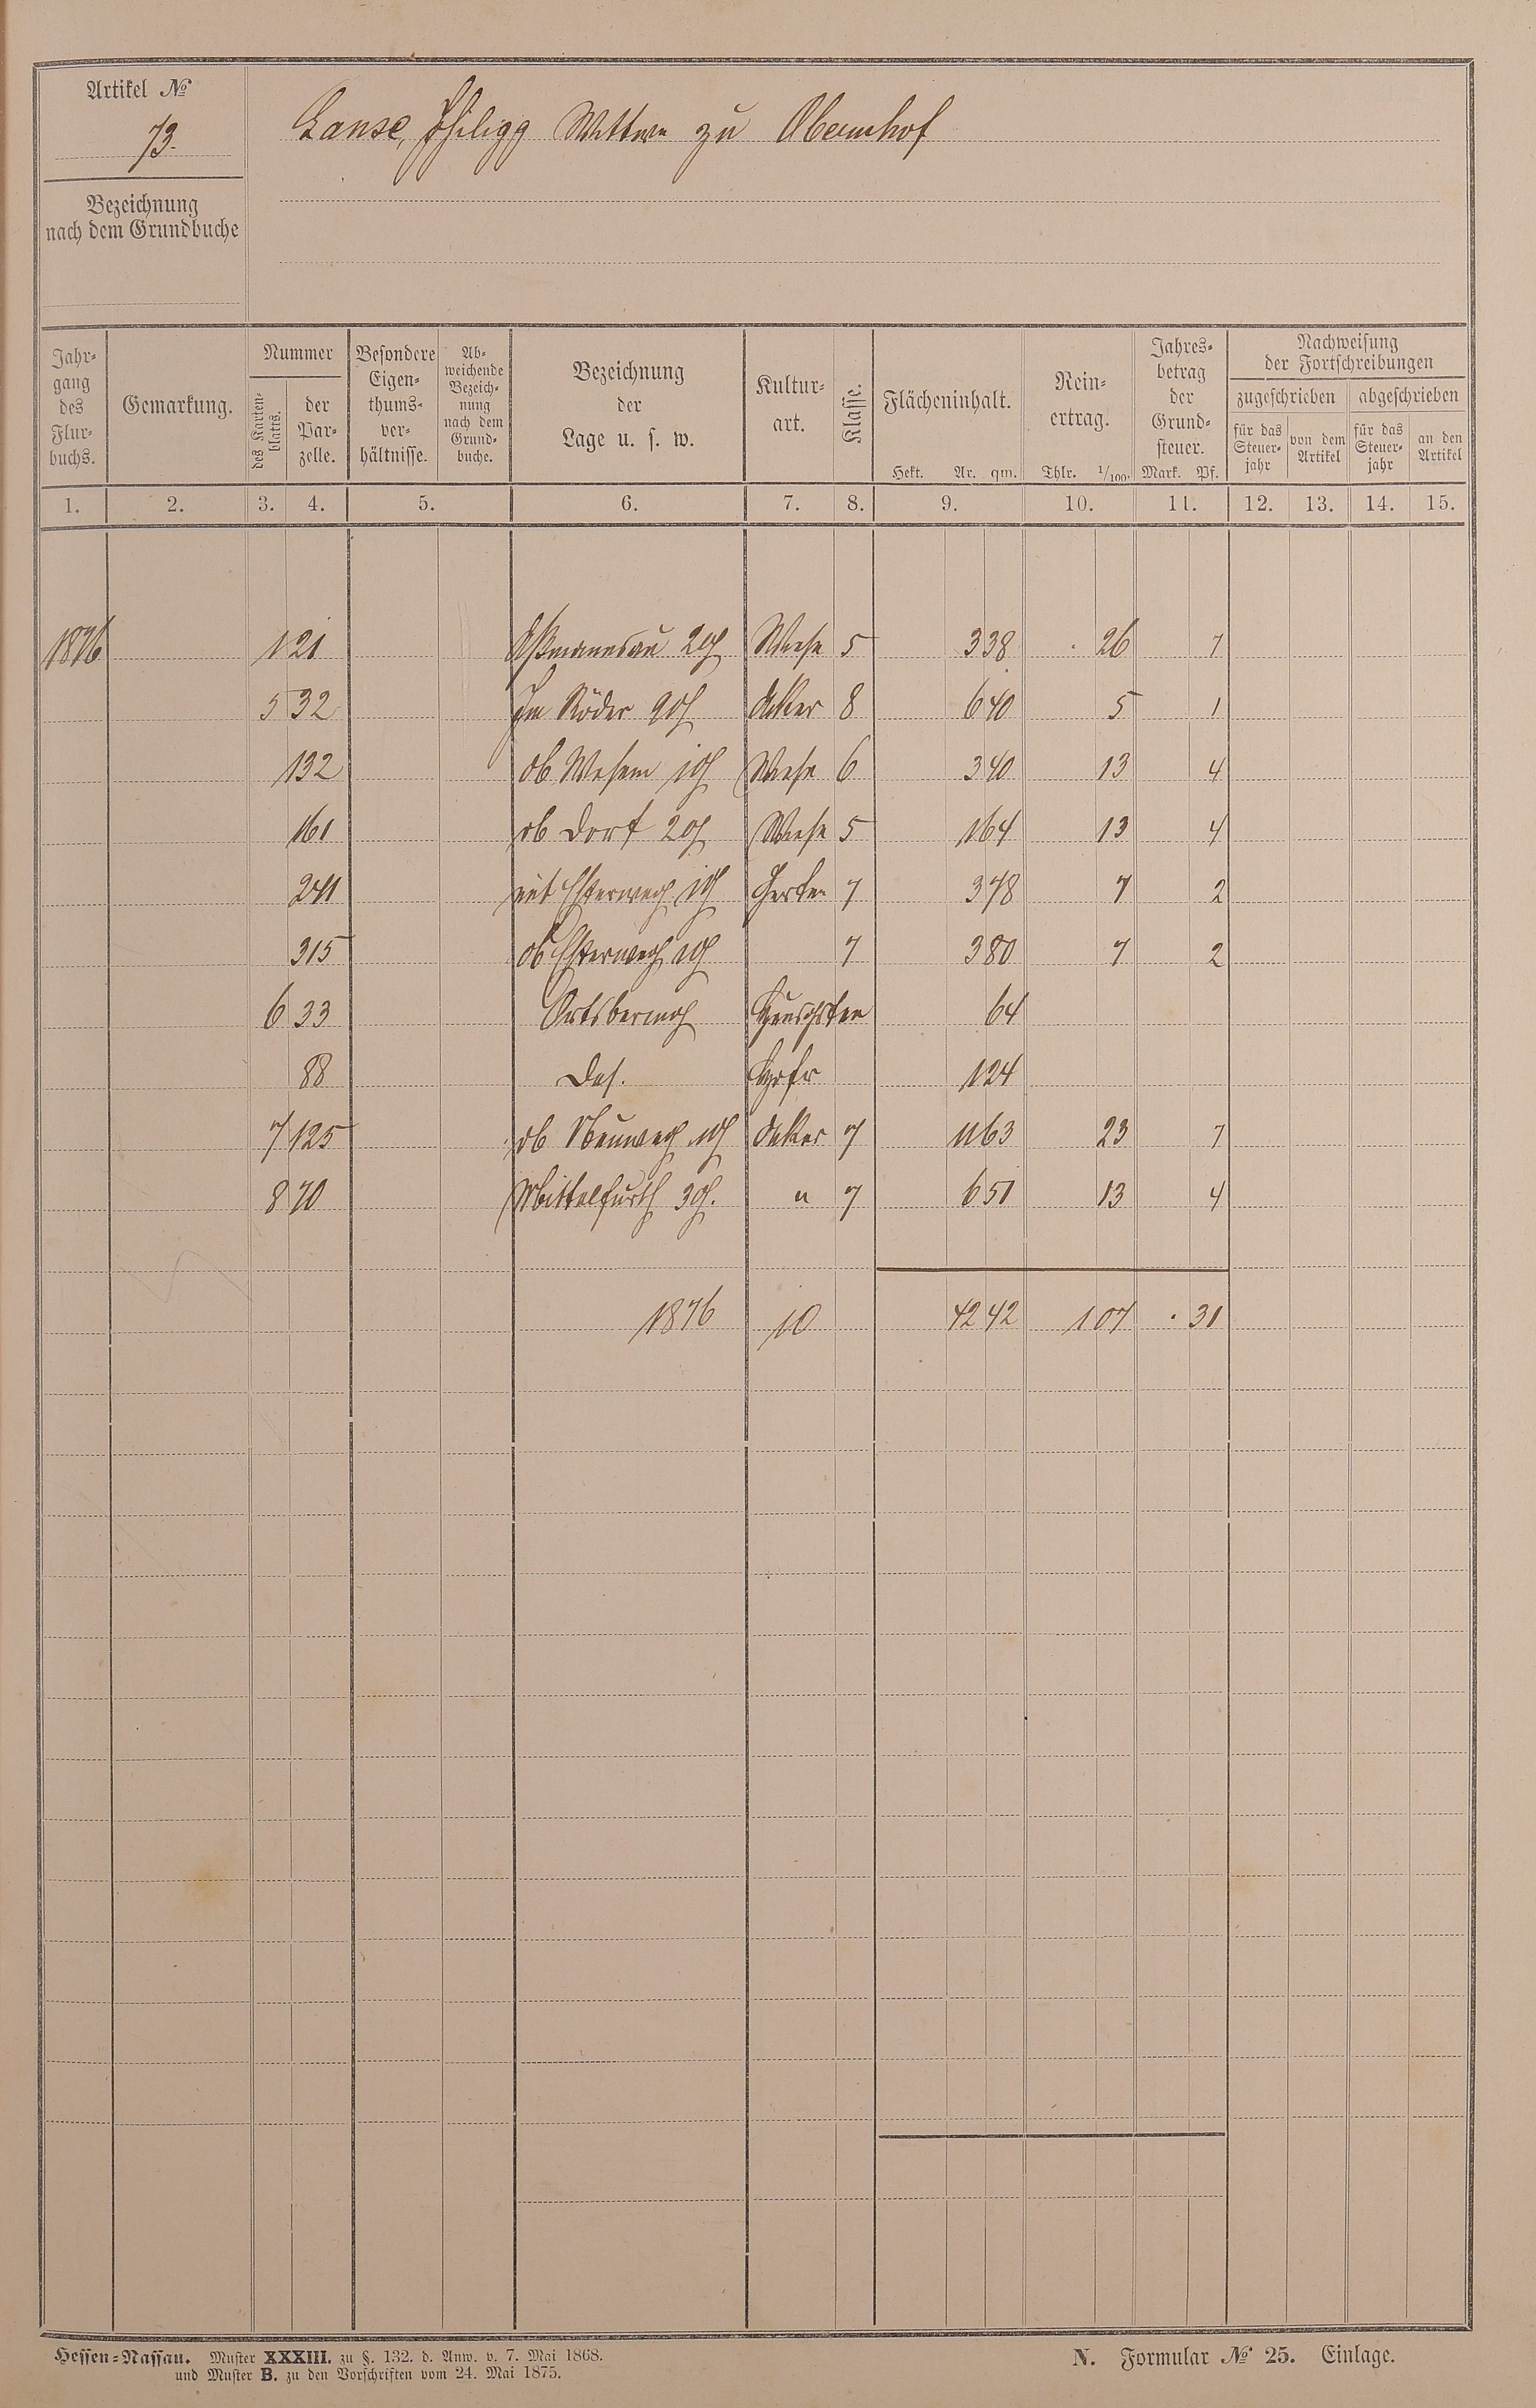 Artikel №
73.
Lanse, Philipp Wittwe zu Obernhof
Bezeichnung
nach dem Grundbuche
Jahrgang des Flurbuchs. Gemarkung. Nummer des Kartenblatts. der Parzelle. Besondere Eigenthumsverhältnisse. Abweichende Bezeichnung nach dem Grundbuche. Bezeichnung der Lage u. s. w. Kulturart. Klasse. Flächeninhalt. Hekt. Ar. qm. Reinertrag. Thlr. 1/100. Jahresbetrag der Grundsteuer. Mark. Pf. Nachweisung der Fortschreibungen zugeschrieben für das Steuerjahr von dem Artikel abgeschrieben für das Steuerjahr an den Artikel
1. 2. 3. 4. 5. 6. 7. 8. 9. 10. 11. 12. 13. 14. 15.
1876 1 21 2 Wiese 5 3 38 26 7
5 32 Im Röder Acker 8 6 40 5 1
132 ob Wiese 6 3 40 13 4
161 ob Dorf 2 Wiese 5 1 64 13 4
241 7 3 78 7 2
315 ob 7 3 80 7 2
6 33 Ortsbering 64
88 Das. 1 24
7 125 ob Neuweg Acker 7 11 63 23 7
8 70 Mittelfurth 3 " 7 6 51 13 4
1876 10 42 42 1 07 31
Hessen-Nassau. Muster XXXIII. zu §. 132. d. Anw. v. 7. Mai 1868.
und Muster B. zu den Vorschriften vom 24. Mai 1875.
N. Formular № 25. Einlage.